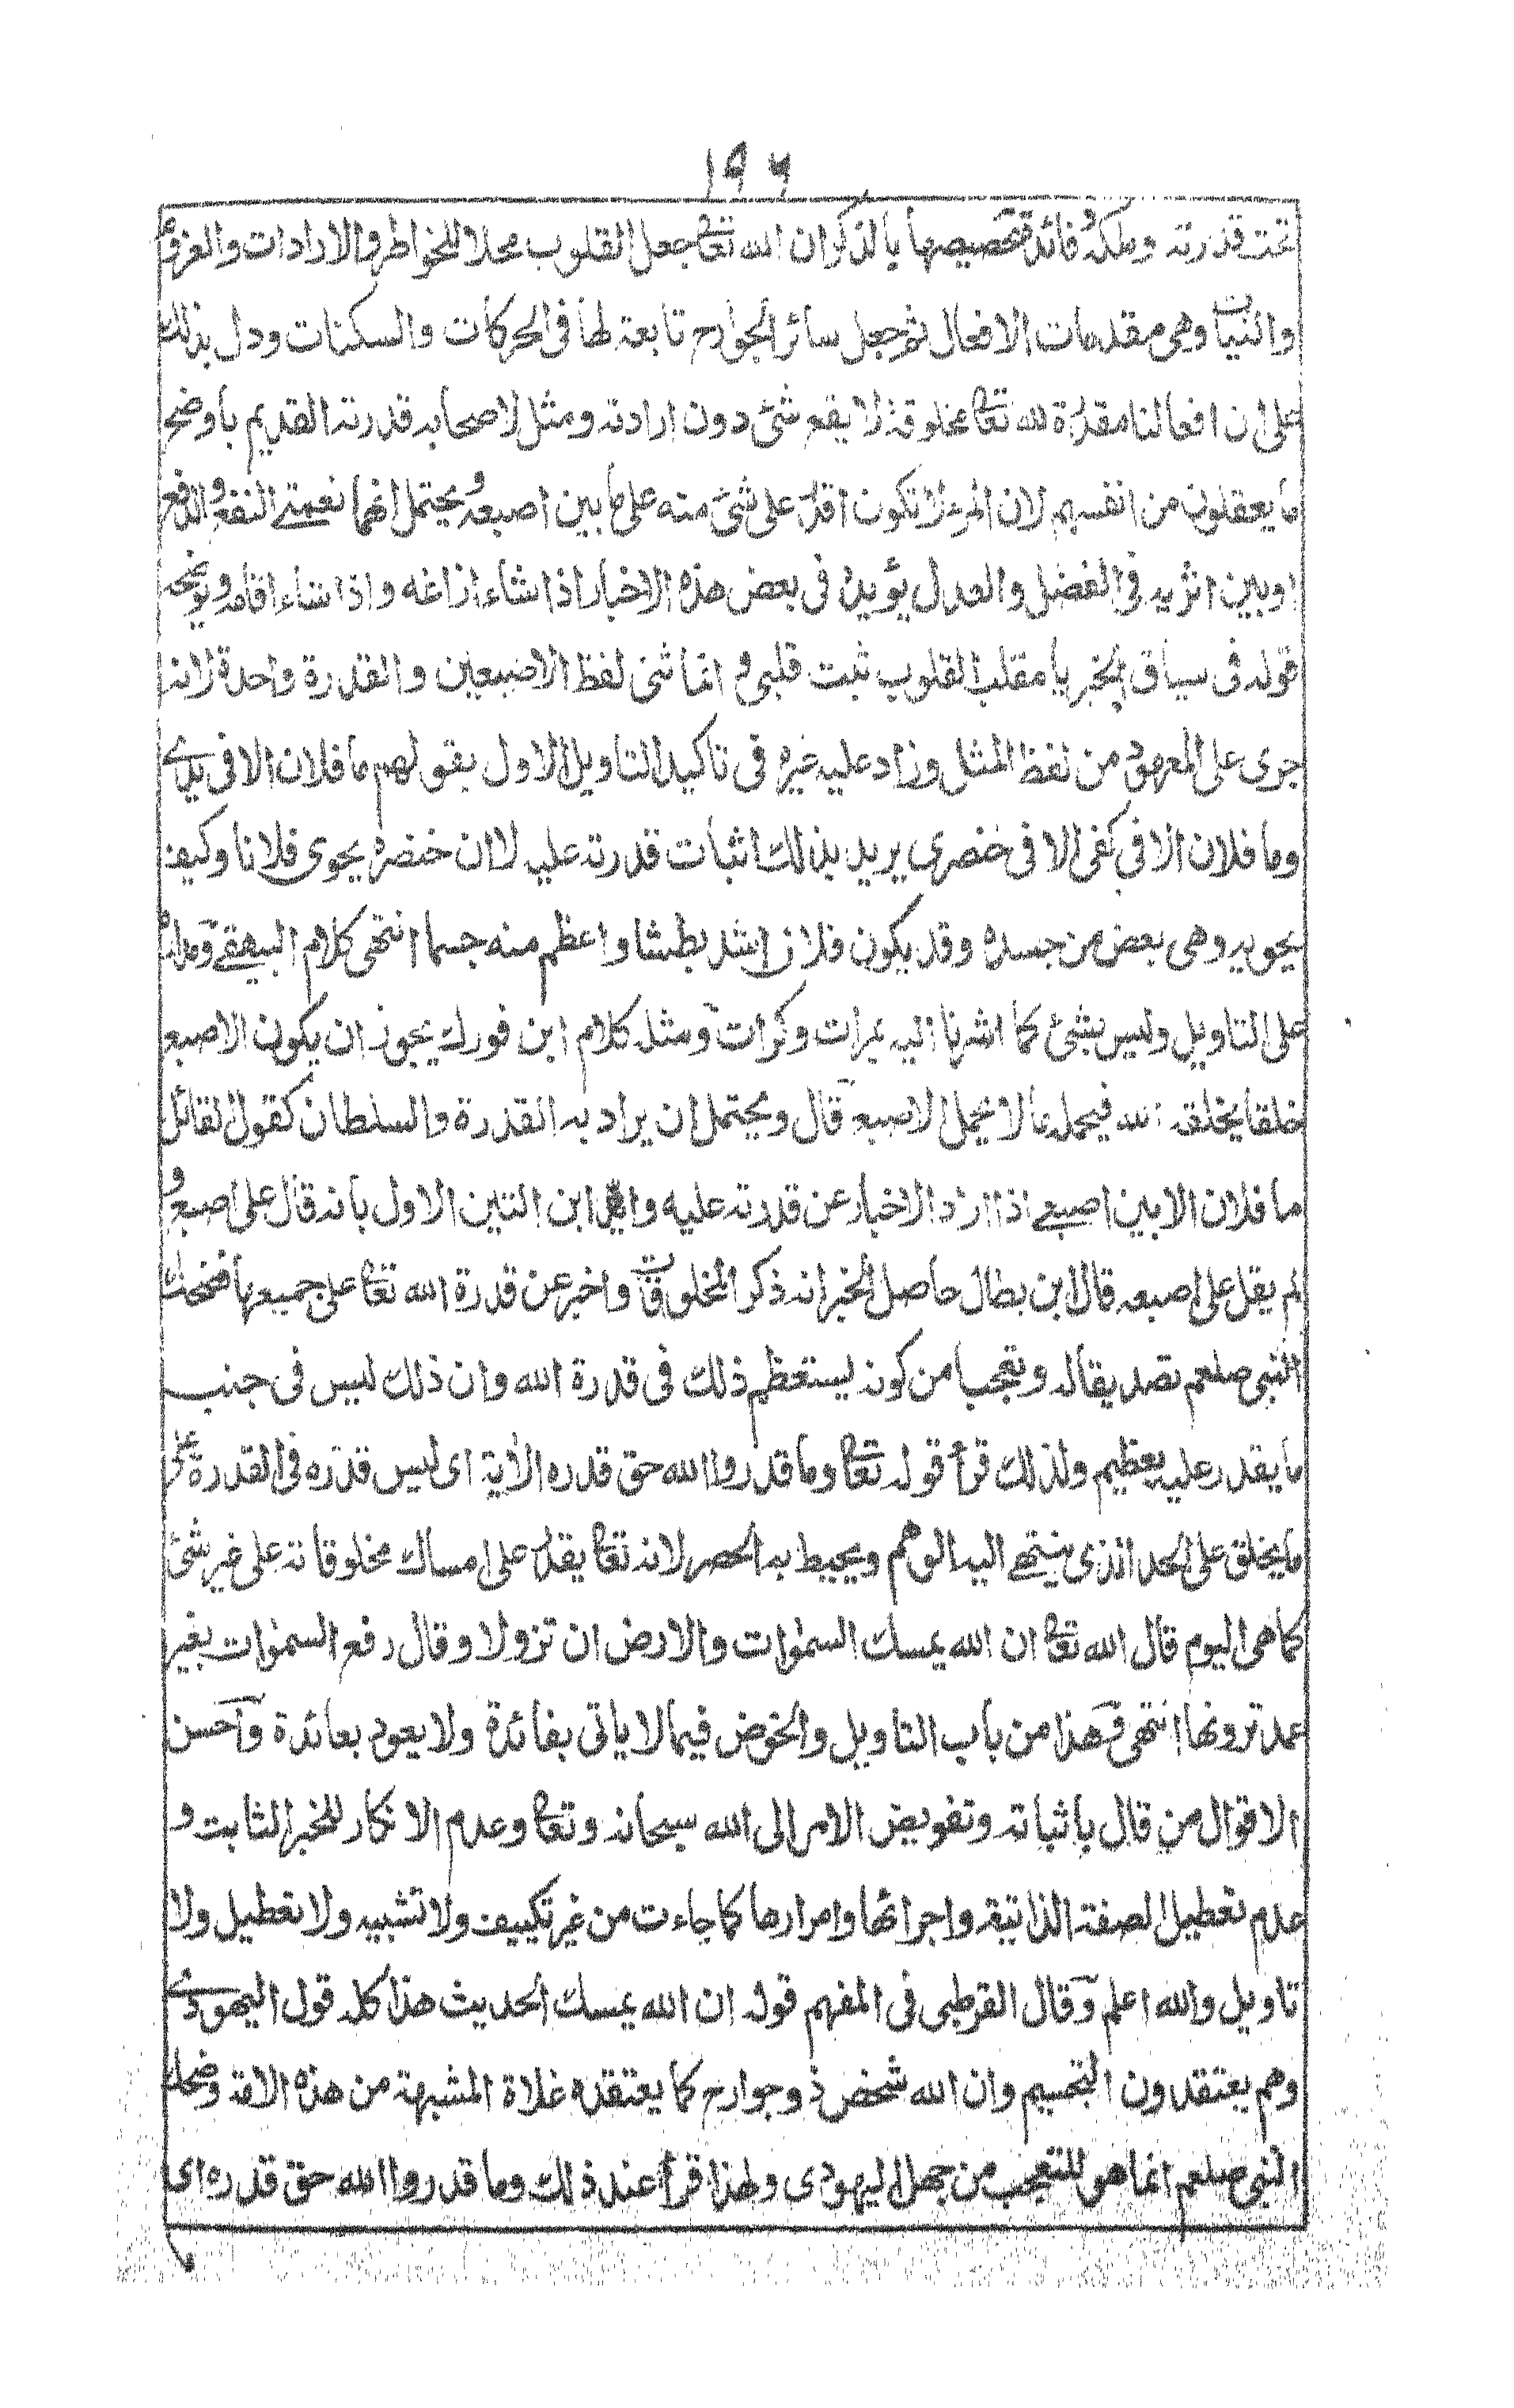 ١٩٦
تحت قدرته وملكه وفائدة تخصيصها بالذكر ان الله تعا جعل القلوب محلا للخواطر والارادات والعزوم
والنيات وهى مقدمات الافعال ثم جعل سائر الجوارح تابعة لها فى الحركات والسكنات ودل بذلك
على ان افعالنا مقدرة لله تعا مخلوقة لا يقع شئ دون ارادته ومثل لاصحابه قدرته القديم باوضح
ما يعقلون من انفسهم لان المرء لا تكون اقدر على شئ منه على ما بين اصبعه ويحتمل انهما نعمتے النفع والدفع
اوبين اثريه فى الفضل والعدل يؤيده فى بعض هذه الاخبار اذا شاء ازاغه واذا شاء اقامه ويوضحه
قوله فى سياق الخبر يا مقلب القلوب ثبت قلبى و انما ثنى لفظ الاصبعين والقدرة واحدة لانه
جرى على المعهود من لفظ المثل وزاد عليه غيره فى تاكيد التاويل الاول بقولهم ما فلان الا فى يدے
وما فلان الا فى كفى الا فى خنصرى يريد بذلك اثبات قدرته عليه لا ان خنصره يحوى فلانا وكيف
يحويه وهى بعض من جسده وقد يكون فلان اشد بطشا واعظم منه جسما انتهى كلام البيهقے
على التاويل وليس بشئ كما اشرنا اليه بمرات وكرات ومثله كلام ابن فورك يجوز ان يكون الاصبع
خلقا يخلقه الله فيحمله ما لا يحمل الاصبع قال ويحتمل ان يراد به القدرة والسلطان كقول القائل
ما فلان الا بين اصبعے اذا اراد الاخبار عن قدرته عليه وايد ابن التين الاول بانه قال على اصبع و
لم يقل على اصبعه قال ابن بطال حاصل الخبر انه ذكر المخلوقات واخبر عن قدرة الله تعا على جميعها فضحك
النبى صلعم تصديقا له وتعجبا من كونه يستعظم ذلك فى قدرة الله وان ذلك ليس فى جنب
ما يقدر عليه بعظيم ولذلك قرأ قوله تعا وما قدروا الله حق قدره الاية اى ليس قدره فى القدرة على
ما يخلق على الحد الذى ينتهے اليه الوهم ويحيط به الحصر لانه تعا يقدر على امساك مخلوقاته على غير شئ
كما هى اليوم قال الله تعا ان الله يمسك السموات والارض ان تزولا وقال رفع السموات بغير
عمد ترونها انتهى وهذا من باب التاويل والخوض فيما لا ياتى بفائدة ولا يعود بعائدة واحسن
الاقوال من قال باثباته وتفويض الامر الى الله سبحانه وتعا وعدم الانكار للخبر الثابت و
عدم تعطيل الصفة الذاتية واجرائها وامرارها كما جاءت من غير تكييف ولا تشبيه ولا تعطيل ولا
تاويل والله اعلم وقال القرطبى فى المفهم قوله ان الله يمسك الحديث هذا كله قول اليهودے
وهم يعتقدون التجسيم وان الله شخص ذو جوارح كما يعتقده غلاة المشبهة من هذه الامة وضحك
النبى صلعم انما هو للتعجب من جهل اليهودى ولهذا قرأ عند ذلك وما قدروا الله حق قدره اى